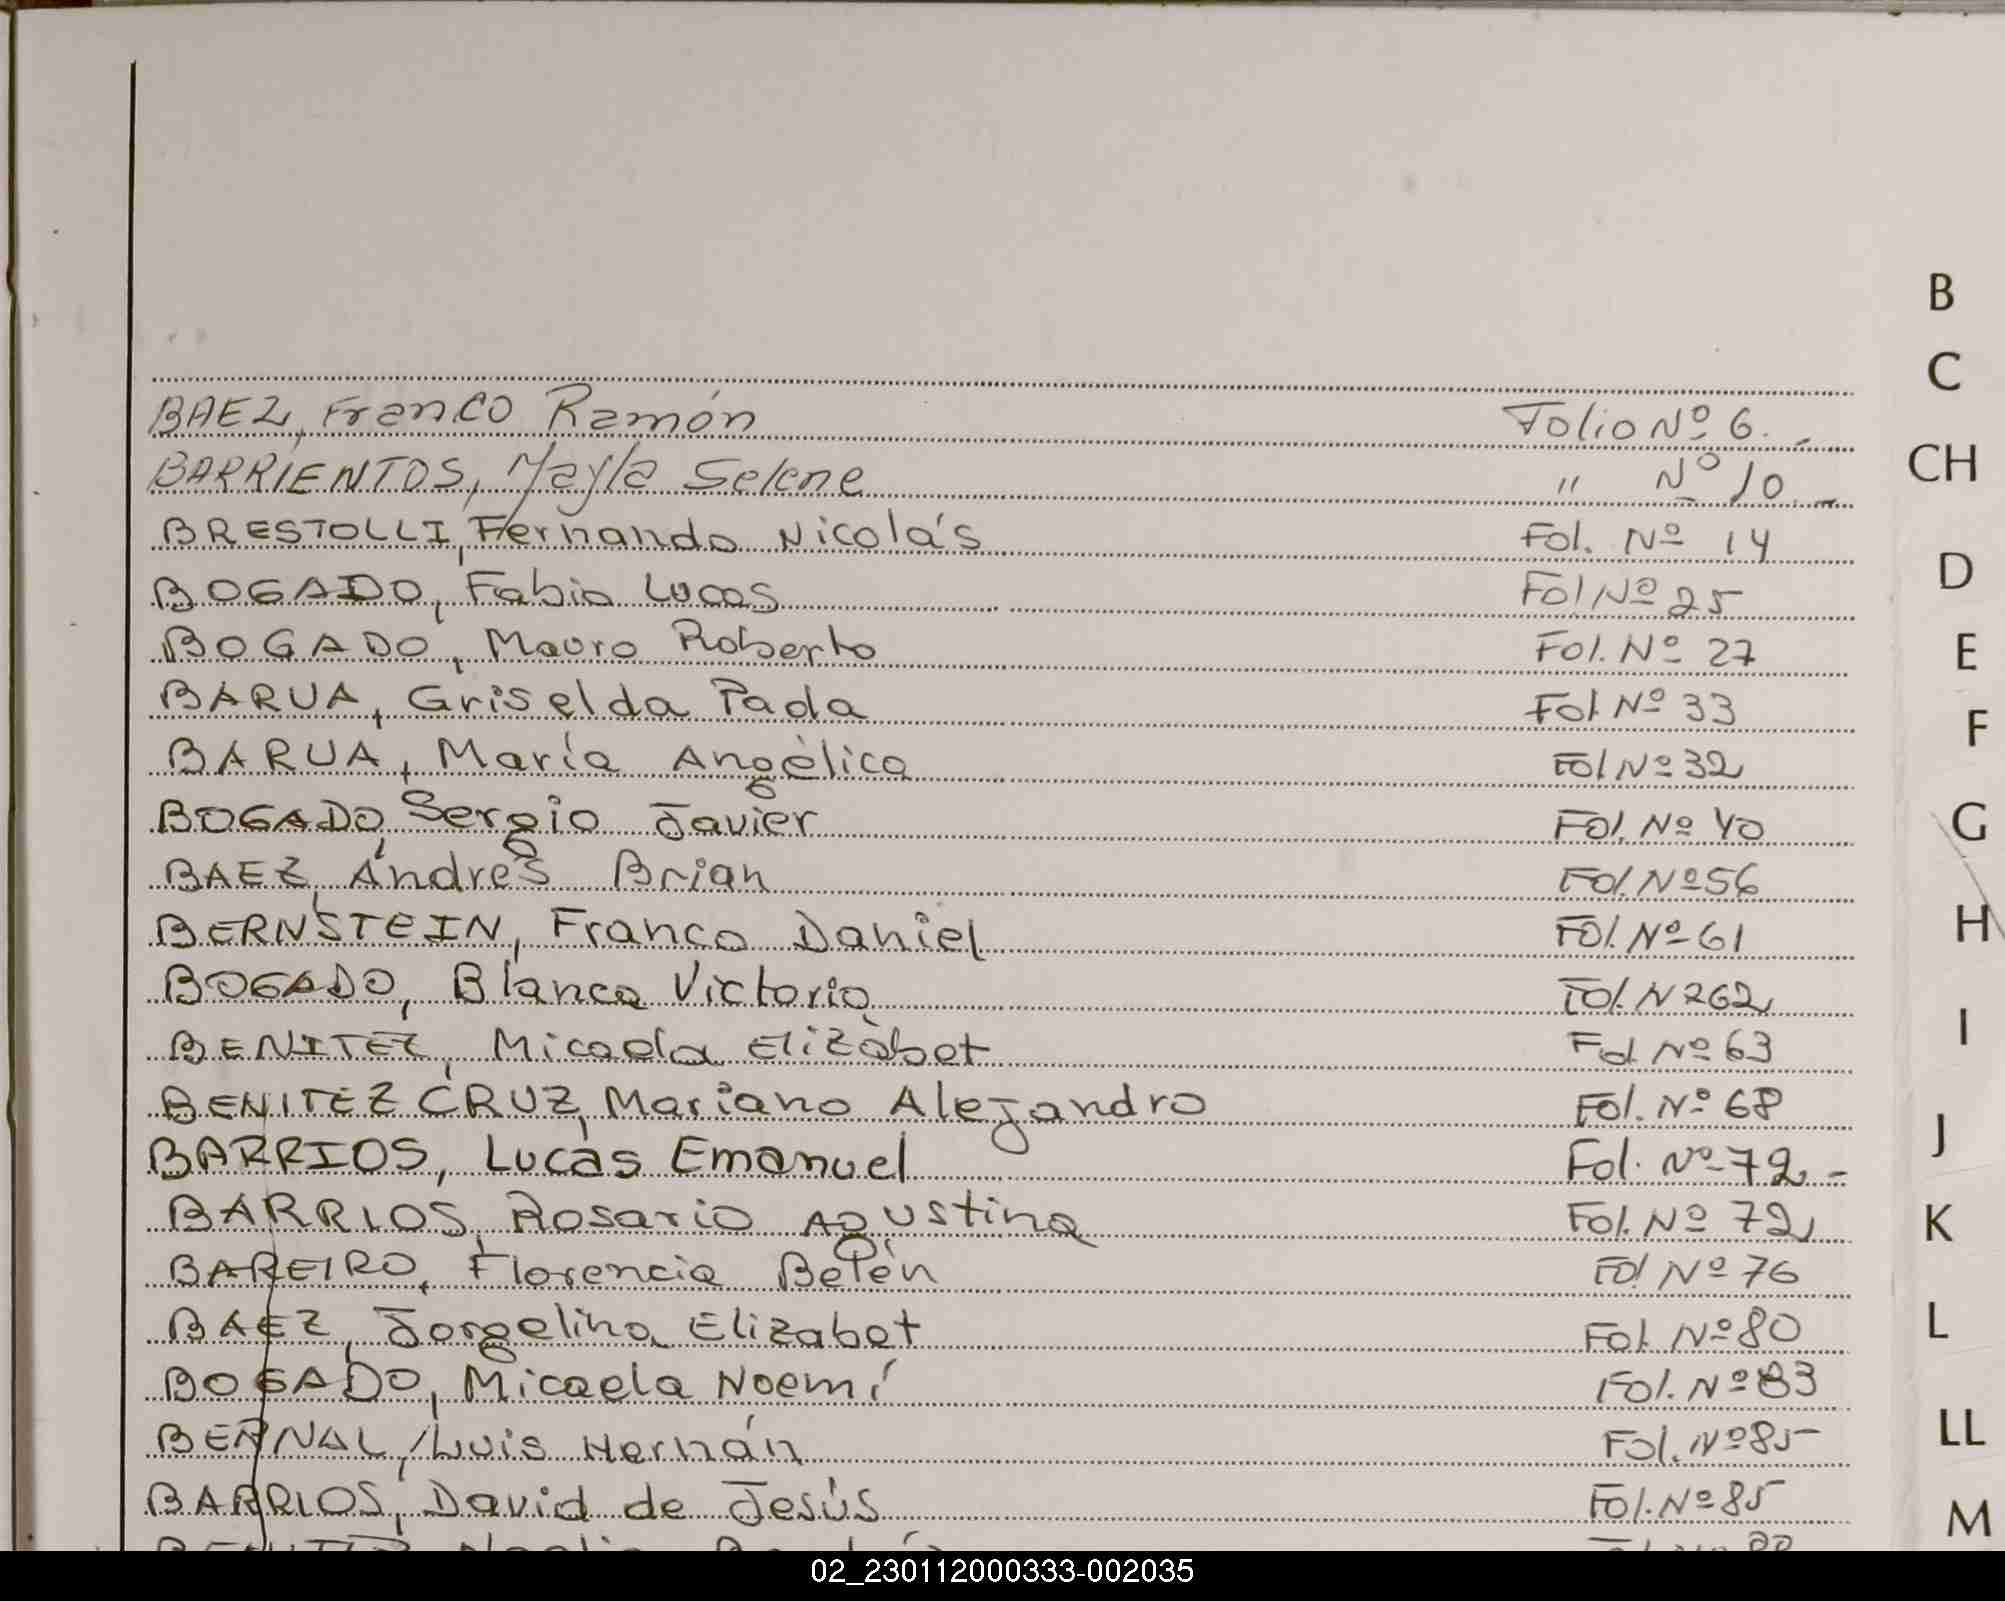 BAEZ, Franco Ramón Folio Nº 6.-
BARRIENTOS, Mayla Selene " Nº 10.-
BRESTOLLI, Fernando Nicolás Fol. Nº 14
BOGADO, Fabio Lucas Fol Nº 25
BOGADO, Mauro Roberto Fol. Nº 27
BARUA, Griselda Paola Fol Nº 33
BARUA, María Angélica Fol Nº 32
BOGADO, Sergio Javier Fol. Nº 40
BAEZ, Andrés Brian Fol. Nº 56
BERNSTEIN, Franco Daniel Fol. Nº 61
BOGADO, Blanca Victoria Fol. Nº 62
BENITEZ, Micaela Elizabet Fol Nº 63
BENITEZ CRUZ, Mariano Alejandro Fol. Nº 68
BARRIOS, Lucas Emanuel Fol. Nº 72.-
BARRIOS, Rosario Agustina Fol. Nº 72
BAREIRO, Florencia Belén Fol Nº 76
BAEZ, Jorgelina Elizabet Fol. Nº 80
BOGADO, Micaela Noemí Fol. Nº 83
BERNAL, Luis Hernán Fol. Nº 85
BARRIOS, David de Jesús Fol. Nº 85
B
C
CH
D
E
F
G
H
I
J
K
L
LL
M
02_230112000333-002035